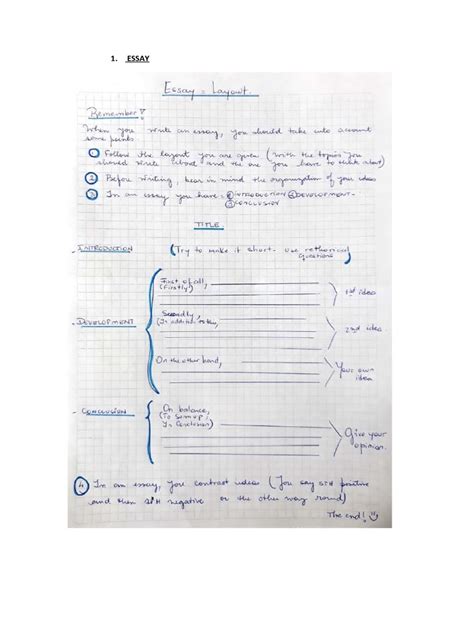 1. ESSAY
Essay: Layout.
Remember!
When you write an essay, you should take into account
some points.
1 Follow the layout you are given (with the topics you
should write about and the one you have to think about)
2 Before writing, bear in mind the organization of your ideas
3 In an essay you have: 1 INTRODUCTION 2 DEVELOPMENT-
3 CONCLUSION
TITLE
- INTRODUCTION (Try to make it short. use rethorical
questions)
First of all,
(Firstly)
1st idea
- DEVELOPMENT
Secondly,
(In addition to this,
2nd idea
On the other hand,
Your own
idea
- CONCLUSION
On balance,
(To sum up,
In Conclusion)
Give your
opinion.
4 In an essay, you contrast ideas (You say sth positive
and then sth negative or the other way round)
The end!